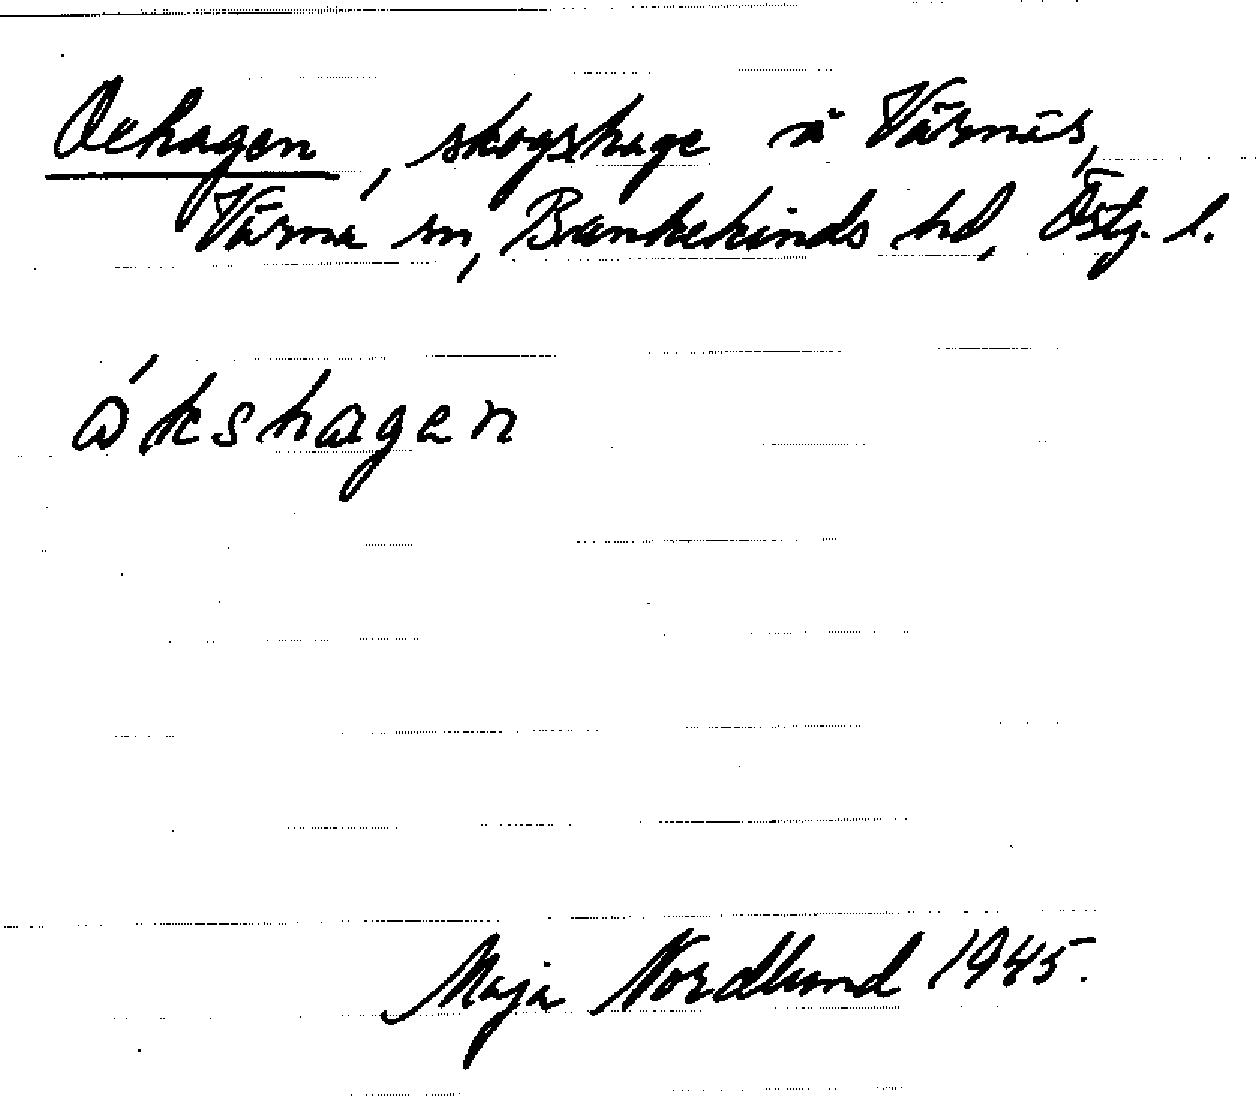 Oehagen, skogshage å Värnäs,
Värna sn, Bankekinds hd, Östg. l.
ókshagen
Maja Nordlund 1945.